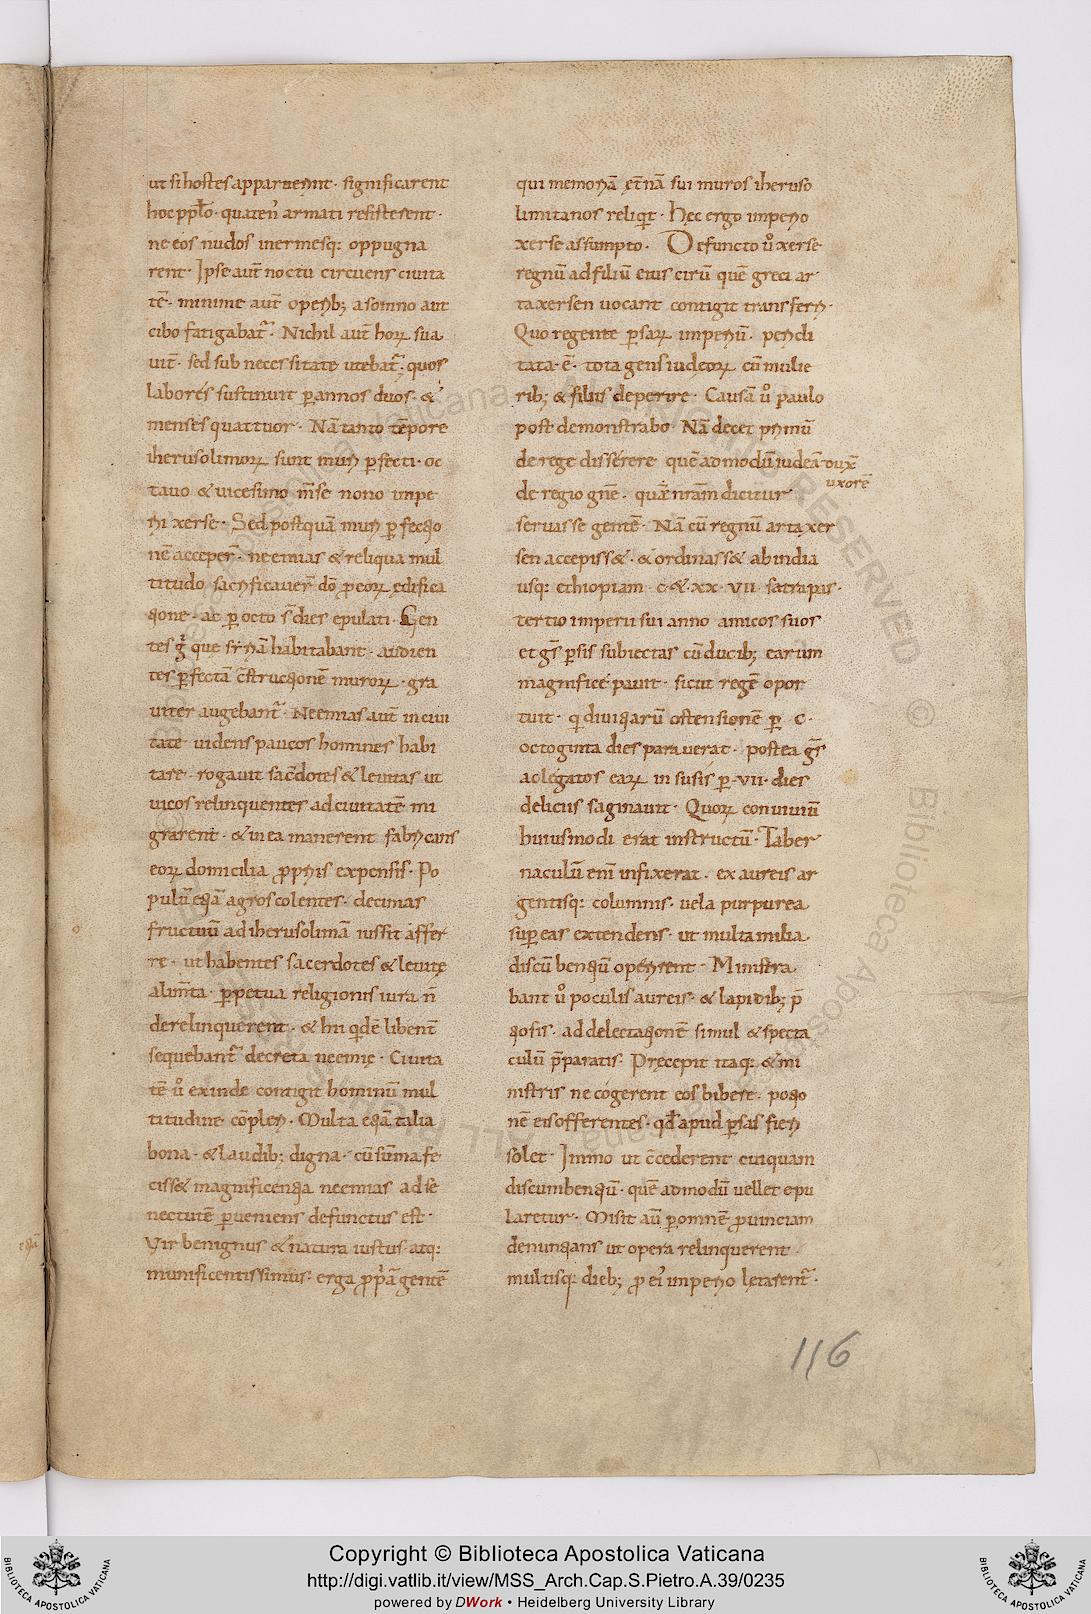 ut si hostes apparuerint· significarent
hoc pplo· quaten' armati resisterent·
ne eos nudos inermesq: oppugna
rent· Ipse aut̄ noctu circuens ciuita
tē· minime aut̄ operib; a somno aut
cibo fatigabat̄· Nichil aut̄ horꝝ sua
uit̄· sed sub necessitate utebat̄· quos
labores sustinuit ꝑ annos duos· &
menses quattuor· Nā tanto tēpore
iherusolimorꝝ sunt muri ꝑfecti· oc
tauo & uicesimo m̄se nono impe
rii xerse· Sed postquā muri ꝑfectio
nē acceper̄· neemias & reliqua mul
titudo sacrificauer̄ dō ꝓ eorꝝ edifica
tione· ac ꝑ octo s̄ dies epulati· Gen
tes g̃ que sẏriā habitabant· audien
tes ꝑfectā c̄structionē murorꝝ· gra
uiter augebant̄· Neemias aut̄ in ciui
tate uidens paucos homines habi
tare· rogauit sac̄dotes & leuitas ut
uicos relinquentes ad ciuitatē mi
grarent· & in ea manerent fabricans
eorꝝ domicilia ꝓpriis expensis· Po
pulū etiā agros colentes· decimas
fructuū ad iherusolimā iussit affer
re· ut habentes sacerdotes & leuitę
alim̄ta· ꝑpetua religionis iura n̄
derelinquerent· & hii qdē libent̄
sequebant̄ decreta neemię· Ciuita
tē u͛o exinde contigit hominū mul
titudine cōpleri· Multa etiā talia
bona· & laudib; digna· cū sūma fe
ciss& magnificentia neemias ad se
nectutē ꝑueniens defunctus est·
Vir benignus & natura iustus atq:
munificentissimus· erga ꝓp̄ā gentē
qui memoriā et̄nā sui muros iheruso
limitanos reliqit· Hęc ergo imperio
xerse assumpto· Defuncto u͛o xerse
regnū ad filiū eius cirū quē greci ar
taxersen uocant contigit transferri·
Quo regente ꝑsarꝝ imperiū· pericli
tata· ē· tota gens iudęorꝝ cū mulie
rib; & filiis deperire· Causā u͛o paulo
post demonstrabo· Nā decet primū
de rege disserere quē ad modū iudeā dux̄
uxorē
de regio gn̄e· quā n̄ram dicitur
seruasse gentē· Nā cū regnū artaxer
sen accepiss&· & ordinass& ab india
usq: ethiopiam· c·&·xx·vii· satrapas·
tertio imperii sui anno amicos suos
et gs̄ ꝑsis subiectas cū ducib; earum
magnifice pauit· sicut regē opor
tuit· q diuitiarū ostensionē ꝑ· c·
octoginta dies parauerat· postea gs̄
ac legatos earꝝ in susis ꝑ·vii· dies
deliciis saginauit· Quorꝝ conuiuiū
huiusmodi erat instructū· Taber
naculū enī infixerat· ex aureis ar
gentisq: columnis· uela purpurea
suꝑ eas extendens· ut multa milia
discūbentiū operirent· Ministra
bant u͛o poculis aureis· & lapidib; p̄
tiosis· ad delectationē simul & specta
culū p̄paratis· Pręcepit itaq: & mi
nistris ne cogerent eos bibere· potio
nē eis offerentes· qd̄ apud ꝑsas fieri
solet· Immo ut c̄cederent cuiquam
discumbentiū· quē ad modū uellet epu
laretur· Misit au̅ ꝑ omnē ꝓuinciam
denuntians ut opera relinquerent·
multisq: dieb; ꝓ eī imperio lętarent̄·
116
Copyright © Biblioteca Apostolica Vaticana
http://digi.vatlib.it/view/MSS_Arch.Cap.S.Pietro.A.39/0235
powered by DWork • Heidelberg University Library